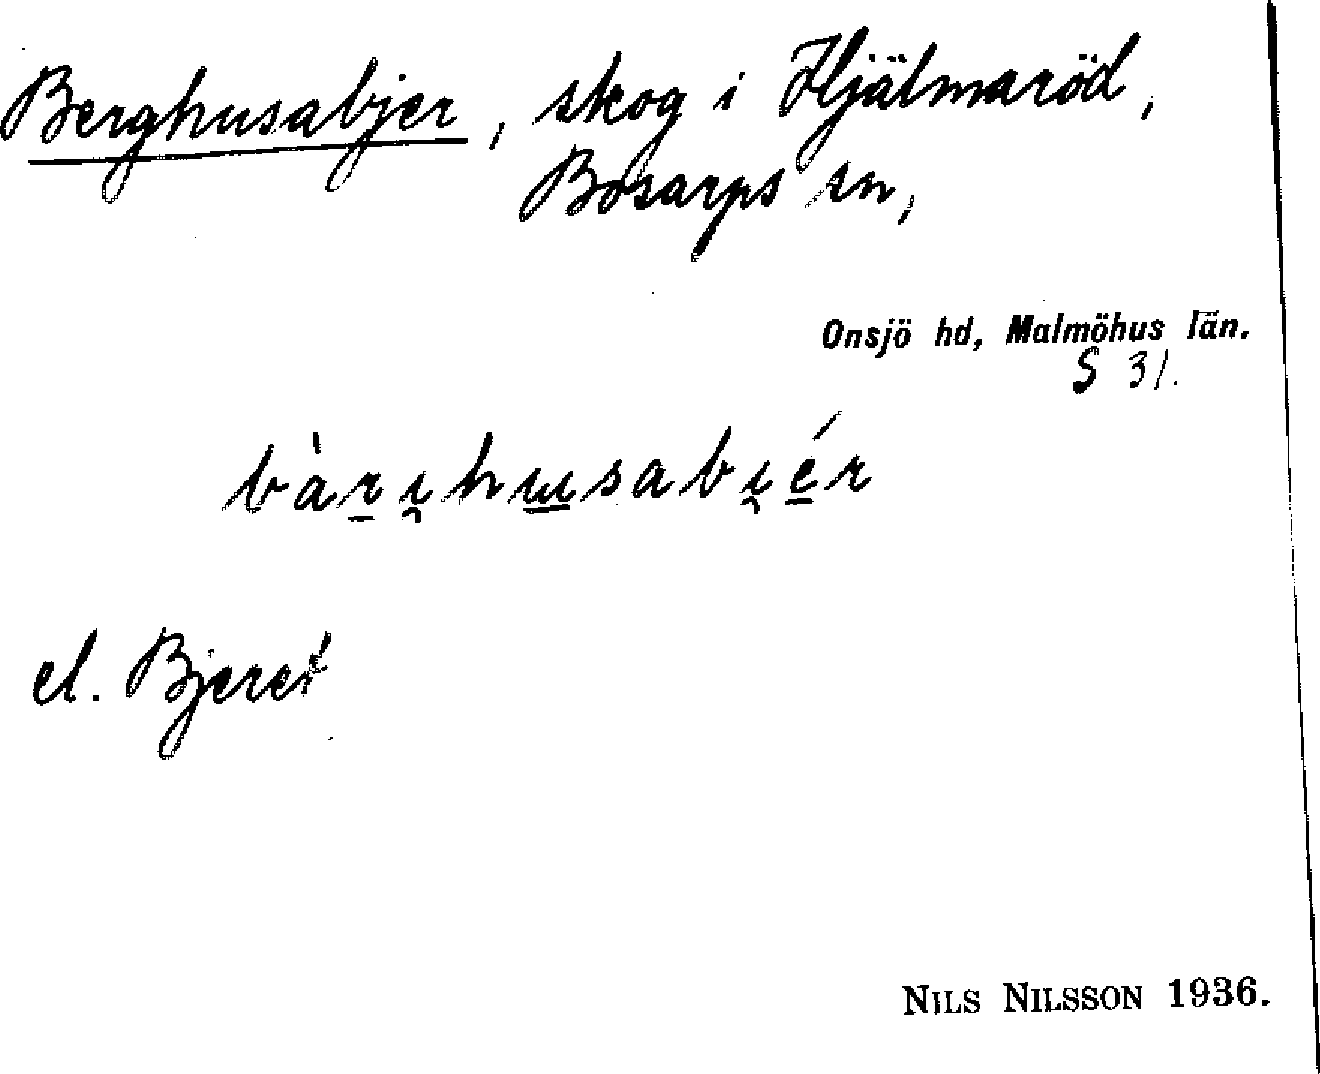 Berghusabjer, skog i Hjälmaröd,
Bosarps sn,
Onsjö hd, Malmöhus län.
S 31.
bàr̲i̯hu̲sabi̯é̲r
el. Bjeret
NILS NILSSON 1936.